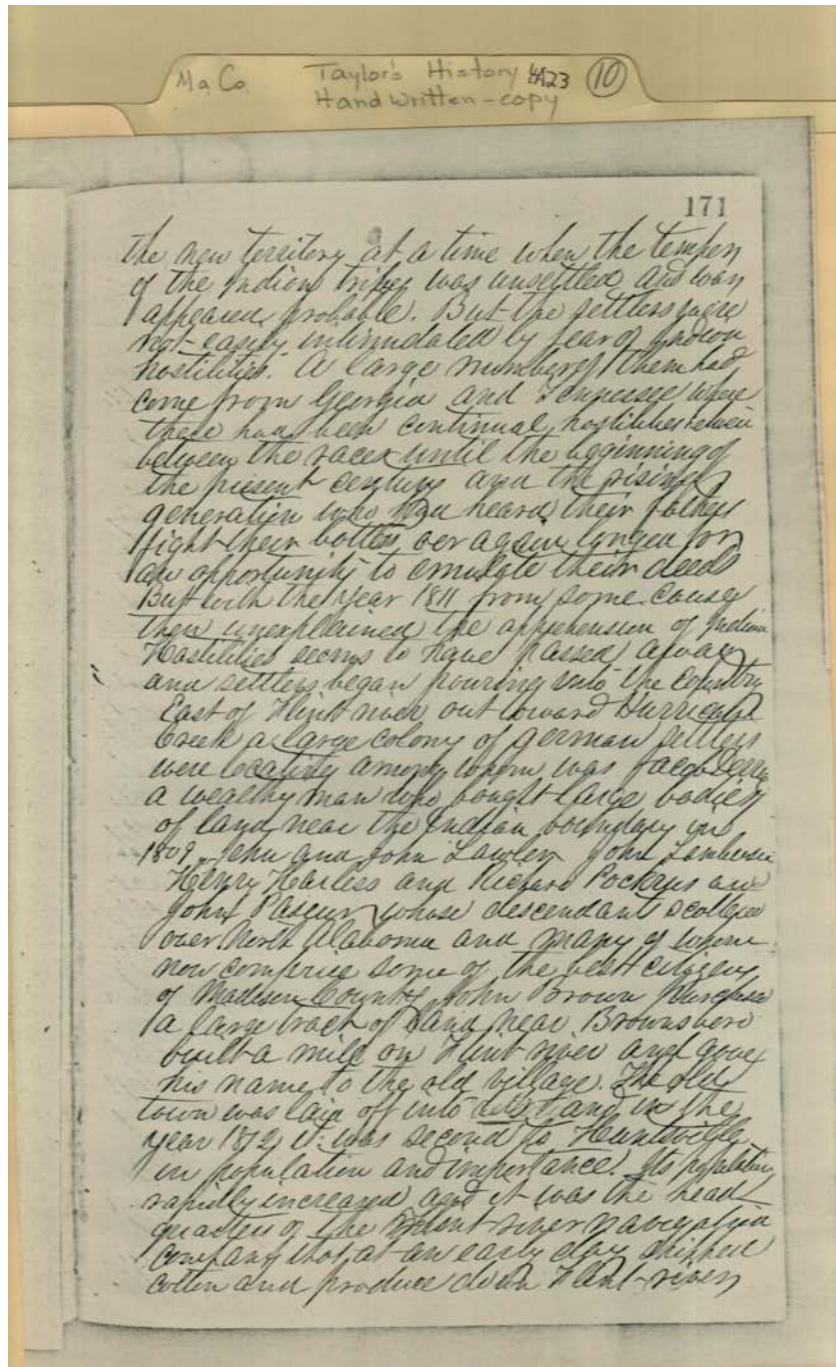 Ma Co Taylor's History 4A23 10
Handwritten - copy
171
the new territory at a time when the temper
of the Indian tribes was unsettled and war
appeared probable. But the settlers were
not easily intimidated by fear of Indian
hostilities. A large number of them had
come from Georgia and Tennessee where
there had been continual hostilities
between the races until the beginning of
the present century and the rising
generation who had heard their fathers
fight their battles over again longed for
an opportunity to emulate their deeds
But with the year 1811 from some cause
then unexplained the apprehension of Indian
Hostilities seems to have passed away
and settlers began pouring into the country
East of Flint river out toward Hurricane
Creek a large colony of german settlers
were locating among whom was Jacob
a wealthy man who bought large bodies
of land near the Indian boundary in
1809. John Lawler John
Henry Harless and Richard Pockrus and
John whose descendants scattered
over North Alabama and many of whom
now comprise some of the best citizens
of Madison County John Brown purchased
a large tract of land near Brownsboro
built a mill on Flint river and gave
his name to the old village. The old
town was laid off into lots and in the
year 1812 it was second to Huntsville
in population and importance. Its population
rapidly increased and it was the head
quarters of the Flint river navigation
company that at an early day shipped
cotton and produce down Flint river